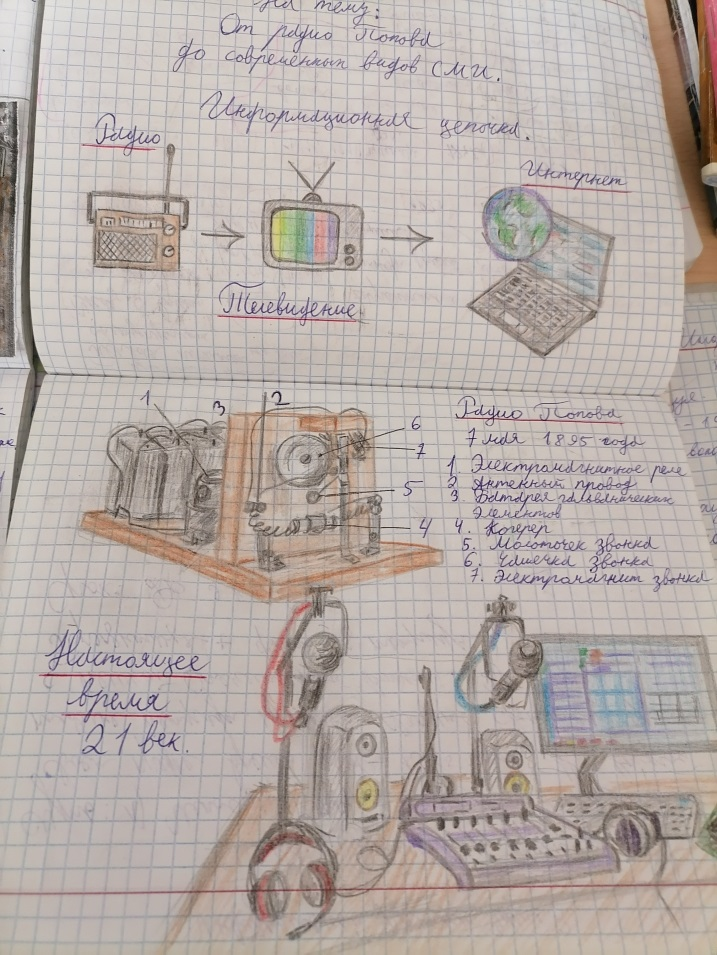 На тему:
От радио Попова
до современных видов СМИ.
Информационная цепочка.
Радио
Интернет
Телевидение
1
3
2
6
7
5
4
Радио Попова
7 мая 1895 года
1. Электромагнитное реле
2. Антенный провод
3. Батарея гальванических
элементов
4. Когерер
5. Молоточек звонка
6. Чашечка звонка
7. Электромагнит звонка
Настоящее
время
21 век.